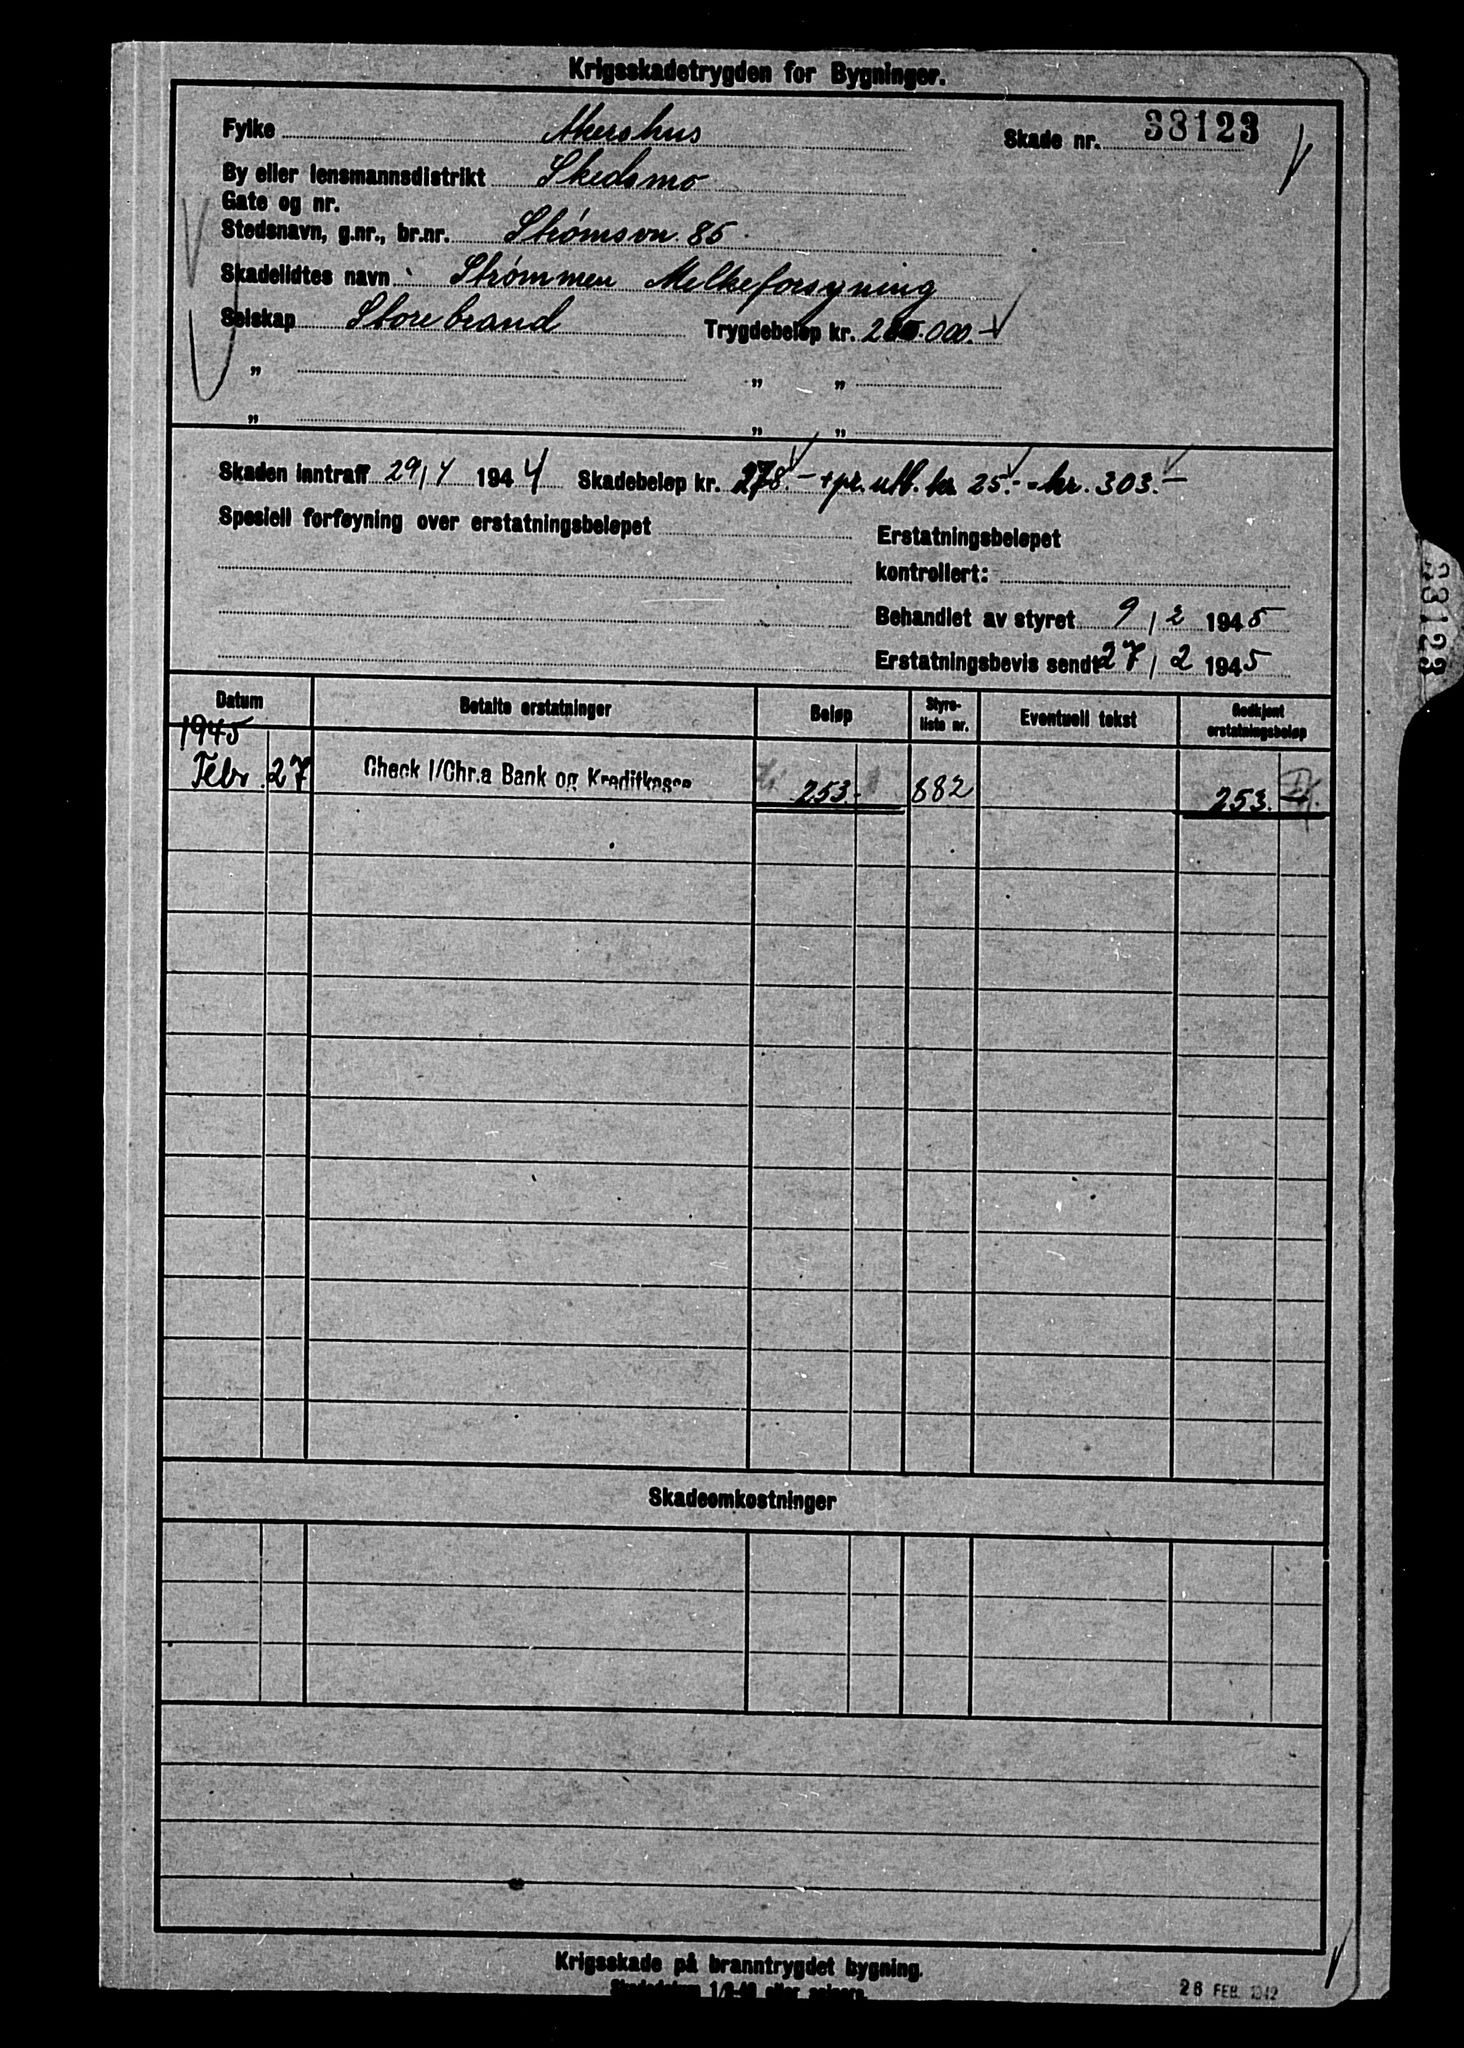 Krigsskadetrygden for Bygninger.
Fylke Akershus Skade nr. 38123
By eller lensmannsdistrikt Skedsmo
Gate og nr.
Stedsnavn, g.nr., br.nr. Strømsvn. 85
Skadelidtes navn Strømmen Melkeforsyning
Selskap Storebrand Trygdebeløp kr. .000.-
„ „ „
„ „ „
Skaden inntraff 29/4 1944 Skadebeløp kr. 278.- + pr. utb. kr 25.- = kr. 303.-
Spesiell forføyning over erstatningsbeløpet Erstatningsbeløpet
kontrollert:
Behandlet av styret 9/2 1945
Erstatningsbevis sendt 27/2 1945
33123
Datum Betalte erstatninger Beløp Styre-liste nr. Eventuell tekst Godkjent erstatningsbeløp
1945
Febr. 27 Check l/Chr.a Bank og Kreditkasse 253.- 882 253.
Skadeomkostninger
Krigsskade på branntrygdet bygning.
Skadedatum 1/9-40 eller seinere.
26 FEB. 1942